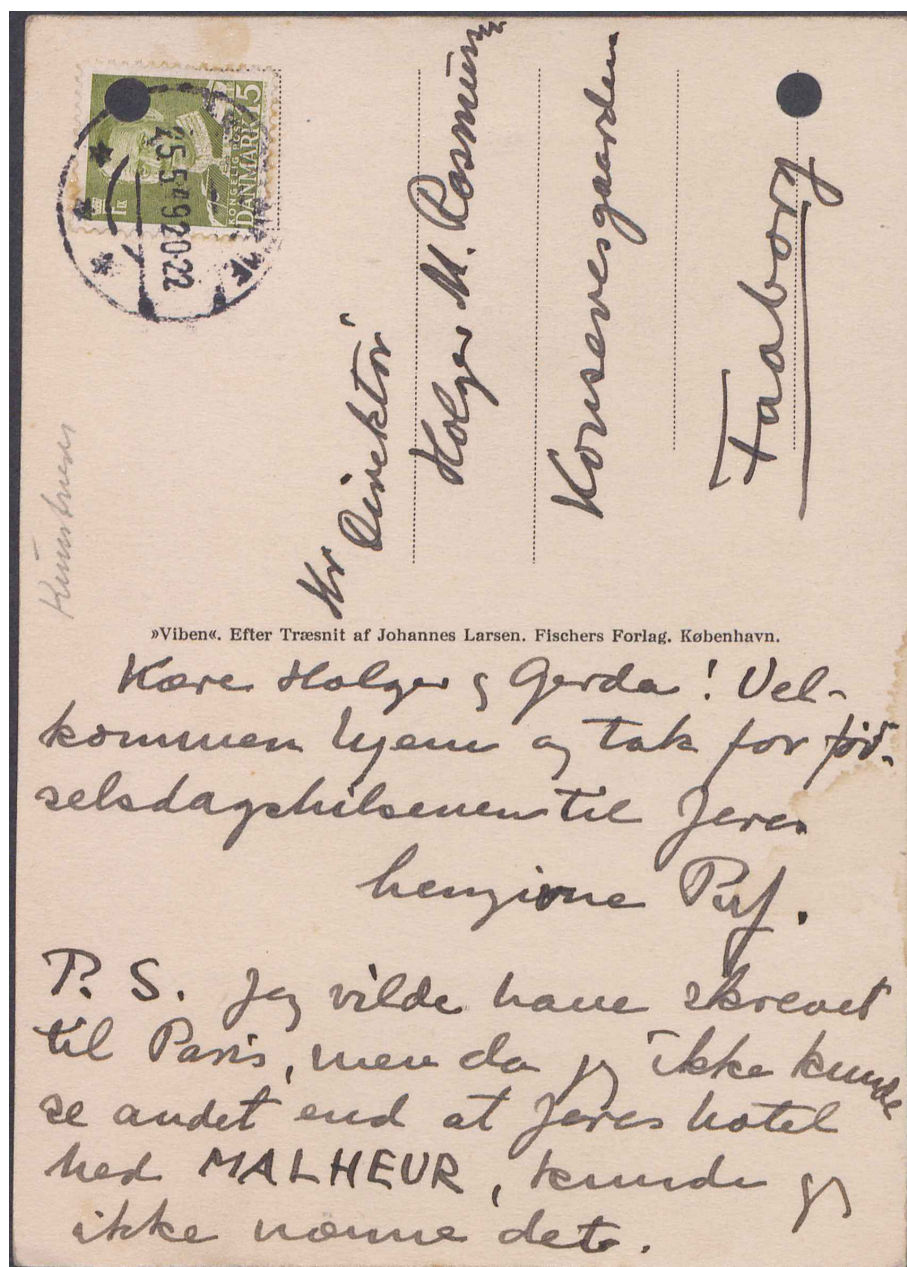 KONGELIG POST
DANMARK 15
25.5.49 20-22
Kunstneren
Hr Direktör
Holger M. Rasmussen
Konservesgaarden
Faaborg
»Viben«. Efter Træsnit af Johannes Larsen. Fischers Forlag. København.
Kære Holger & Gerda! Vel-
kommen hjem og tak for föd-
selsdagshilsenen til Jeres
hengivne Puf.
P. S. Jeg vilde have skrevet
til Paris, men da jeg ikke kunde
se andet end at Jeres hotel
hed MALHEUR, kunde jeg
ikke nænne det.